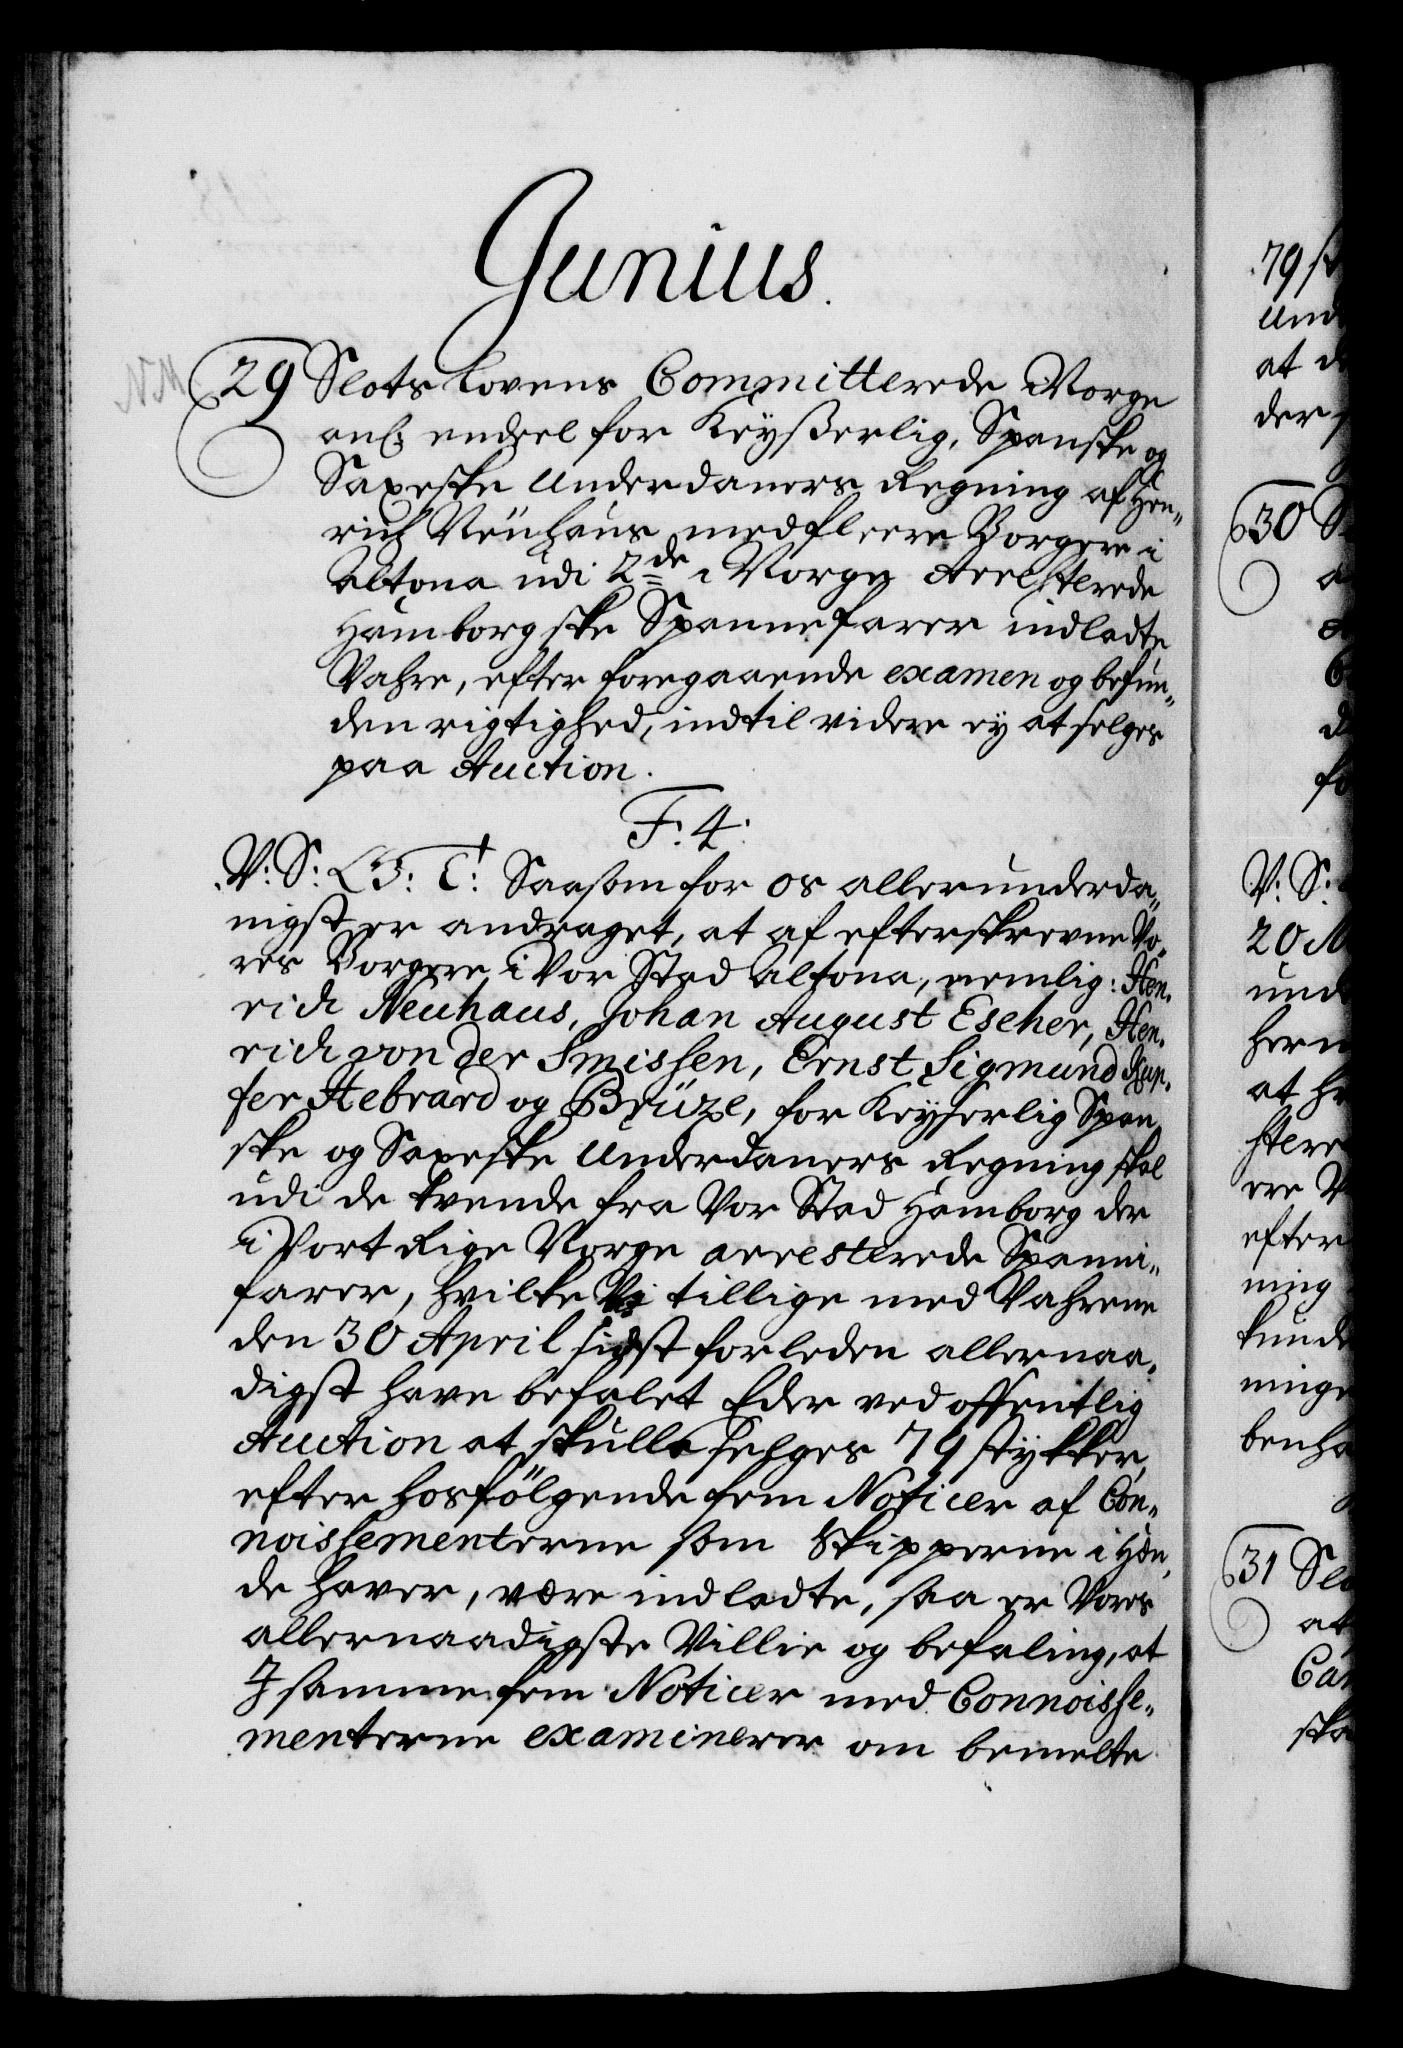 Junius.
29 Slots Lovens Committerede i Norge
anl: endeel for Keyßerlig, Spanske og
Saxeske Underdaners Regning af Hen„
rich Neuhaus med fleere Borgere i
Altona udi 2de i Norge Arresterede
Hamborgske Spannefarer indladte
Vahre, efter foregaaende examen og befun„
den rigtighed, indtil videre ey at selges
paa Auction.
F: 4.
V: S: G: T: Saasom for os allerunderda„
nigst er andraget, at af efterskrevne Vo„
res Borgere i Vor Stad Altona, nemlig: Hen„
rich Neuhaus, Johan August Escher, Hen„
rich von der Smissen, Ernst Sigmund Kup„
fer Hebrard og Brüze, for Keyserlig Span„
ske og Saxeske Underdaners Regning skal
udi de tvende fra Vor Stad Hamborg der
i Vort Rige Norge arresterede Spanni„
farer, hvilke Vi tillige med Vahrene
den 30 April sidst forleden allernaa„
digst have befalet Eder ved offentlig
Auction at skulle selges 79 stykker,
efter hosfölgende fem Noticer af Con„
noissementerne som Skipperne i Hæn„
de haver, være indladte, saa er Vores
allernaadigste Villie og befaling, at
J samme fem Noticer med Connoisse„
menterne examinerer om bemelte
79 st
und
at d
der
30 S
V: S:
20 M
und
her
at h
stere
ere V
efter
ning
kunde
ninge
benha
31 Slo
at
Can
ska